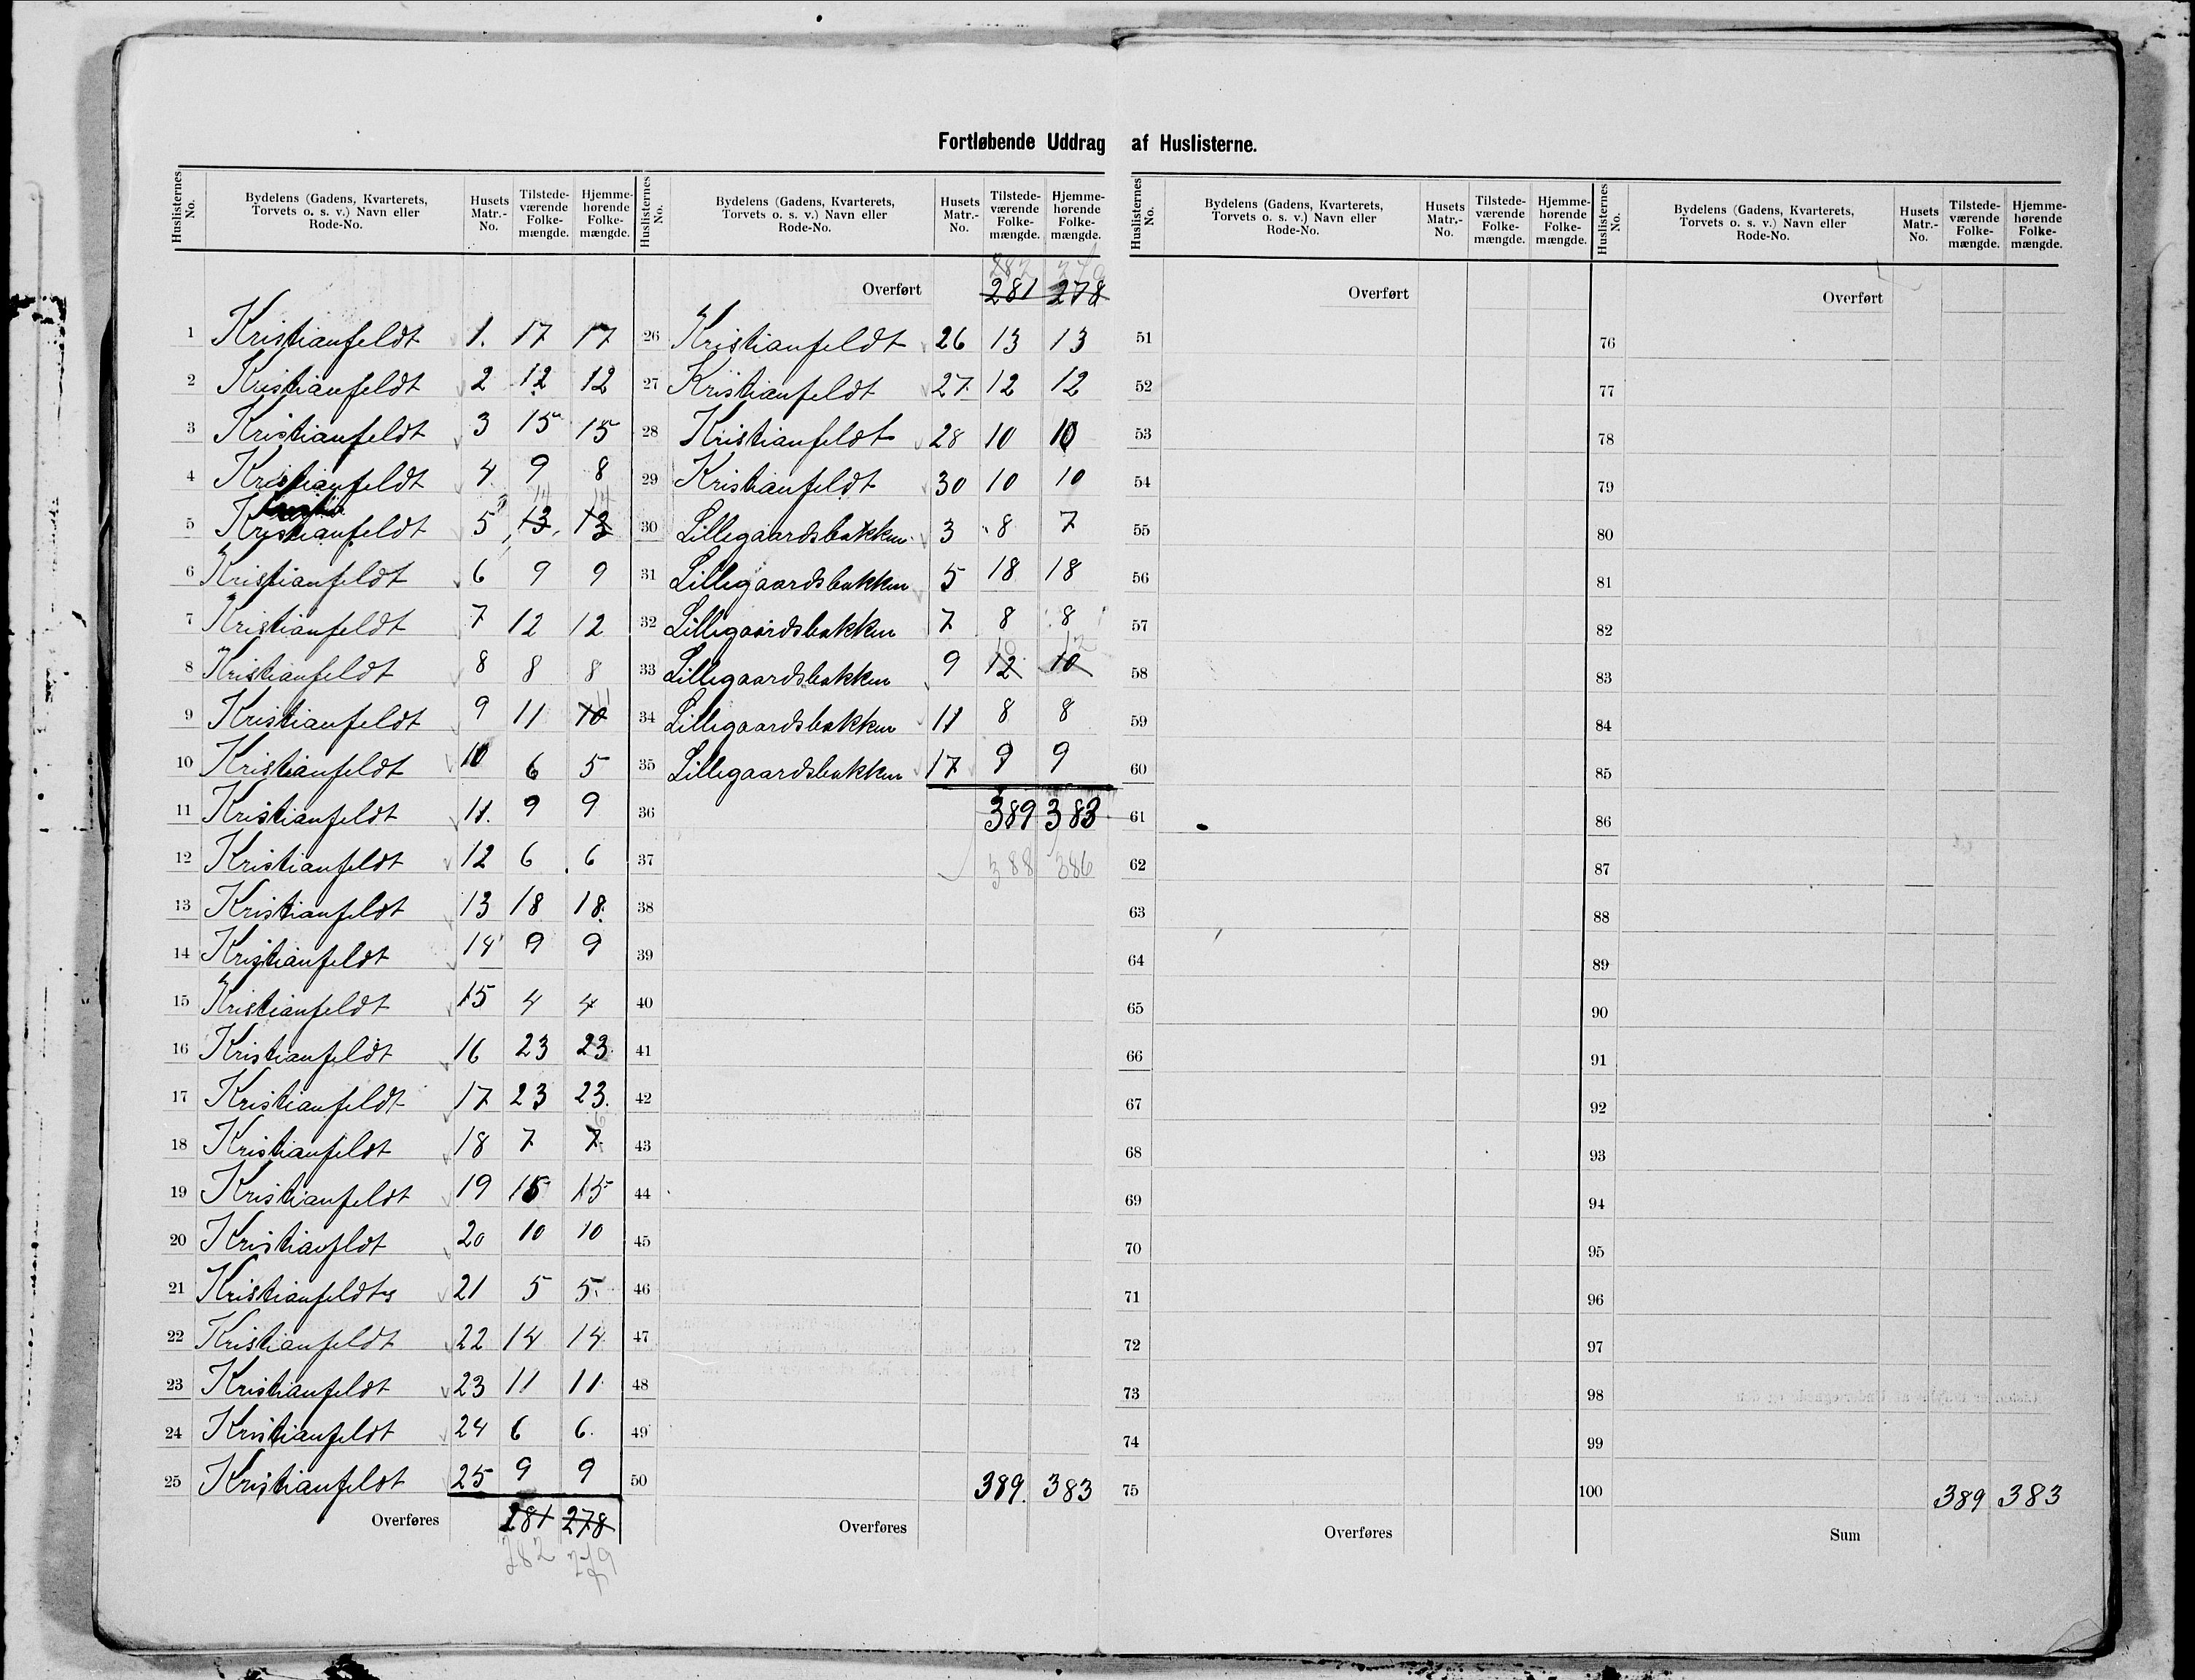 Fortløbende Uddrag af Huslisterne.
Huslisternes No. Bydelens (Gadens, Kvarterets, Torvets o. s. v.) Navn eller Rode-No. Husets Matr.-No. Tilstedeværende Folkemængde. Hjemmehørende Folkemængde.
1 Kristianfeldt 1. 17 17
2 Kristianfeldt 2 12 12
3 Kristianfeldt 3 15 15
4 Kristianfeldt 4 9 8
14 14
5 Kristianfeldt 5 13 13
6 Kristianfeldt 6 9 9
7 Kristianfeldt 7 12 12
8 Kristianfeldt 8 8 8
9 Kristianfeldt 9 11 10 11
10 Kristianfeldt 10 6 5
11 Kristianfeldt 11. 9 9
12 Kristianfeldt 12 6 6
13 Kristianfeldt 13 18 18
14 Kristianfeldt 14 9 9
15 Kristianfeldt 15 4 4
16 Kristianfeldt 16 23 23
17 Kristianfeldt 17 23 23.
18 Kristianfeldt 18 7 7 6
19 Kristianfeldt 19 15 15
20 Kristianfldt 20 10 10
21 Kristianfeldts 21 5 5
22 Kristianfeldt 22 14 14
23 Kristianfeldt 23 11 11
24 Kristianfeldt 24 6 6.
25 Kristianfeldt 25 9 9
Overføres 281 278
282 279
Huslisternes No. Bydelens (Gadens, Kvarterets, Torvets o. s. v.) Navn eller Rode-No. Husets Matr.-No. Tilstedeværende Folkemængde. Hjemmehørende Folkemængde.
282 279
Overført 281 278
26 Kristianfeldt 26 13 13
27 Kristianfeldt 27 12 12
28 Kristianfeldt 28 10 10
29 Kristianfeldt 30 10 10
30 Lillegaardsbakken 3 8 7
31 Lillegaardsbakken 5 18 18
32 Lillegaardsbakken 7 8 8
10 12
33 Lillegaardsbakken 9 12 10
34 Lillegaardsbakken 11 8 8
35 Lillegaardsbakken 17 9 9
36 389 383
37 388 386
38
39
40
41
42
43
44
45
46
47
48
49
50 389. 383
Overføres
Huslisternes No. Bydelens (Gadens, Kvarterets, Torvets o. s. v.) Navn eller Rode-No. Husets Matr.-No. Tilstedeværende Folkemængde. Hjemmehørende Folkemængde.
Overført
51
52
53
54
55
56
57
58
59
60
61
62
63
64
65
66
67
68
69
70
71
72
73
74
75
Overføres
Huslisternes No. Bydelens (Gadens, Kvarterets, Torvets o. s. v.) Navn eller Rode-No. Husets Matr.-No. Tilstedeværende Folkemængde. Hjemmehørende Folkemængde.
Overført
76
77
78
79
80
81
82
83
84
85
86
87
88
89
90
91
92
93
94
95
96
97
98
99
100 389 383
Sum